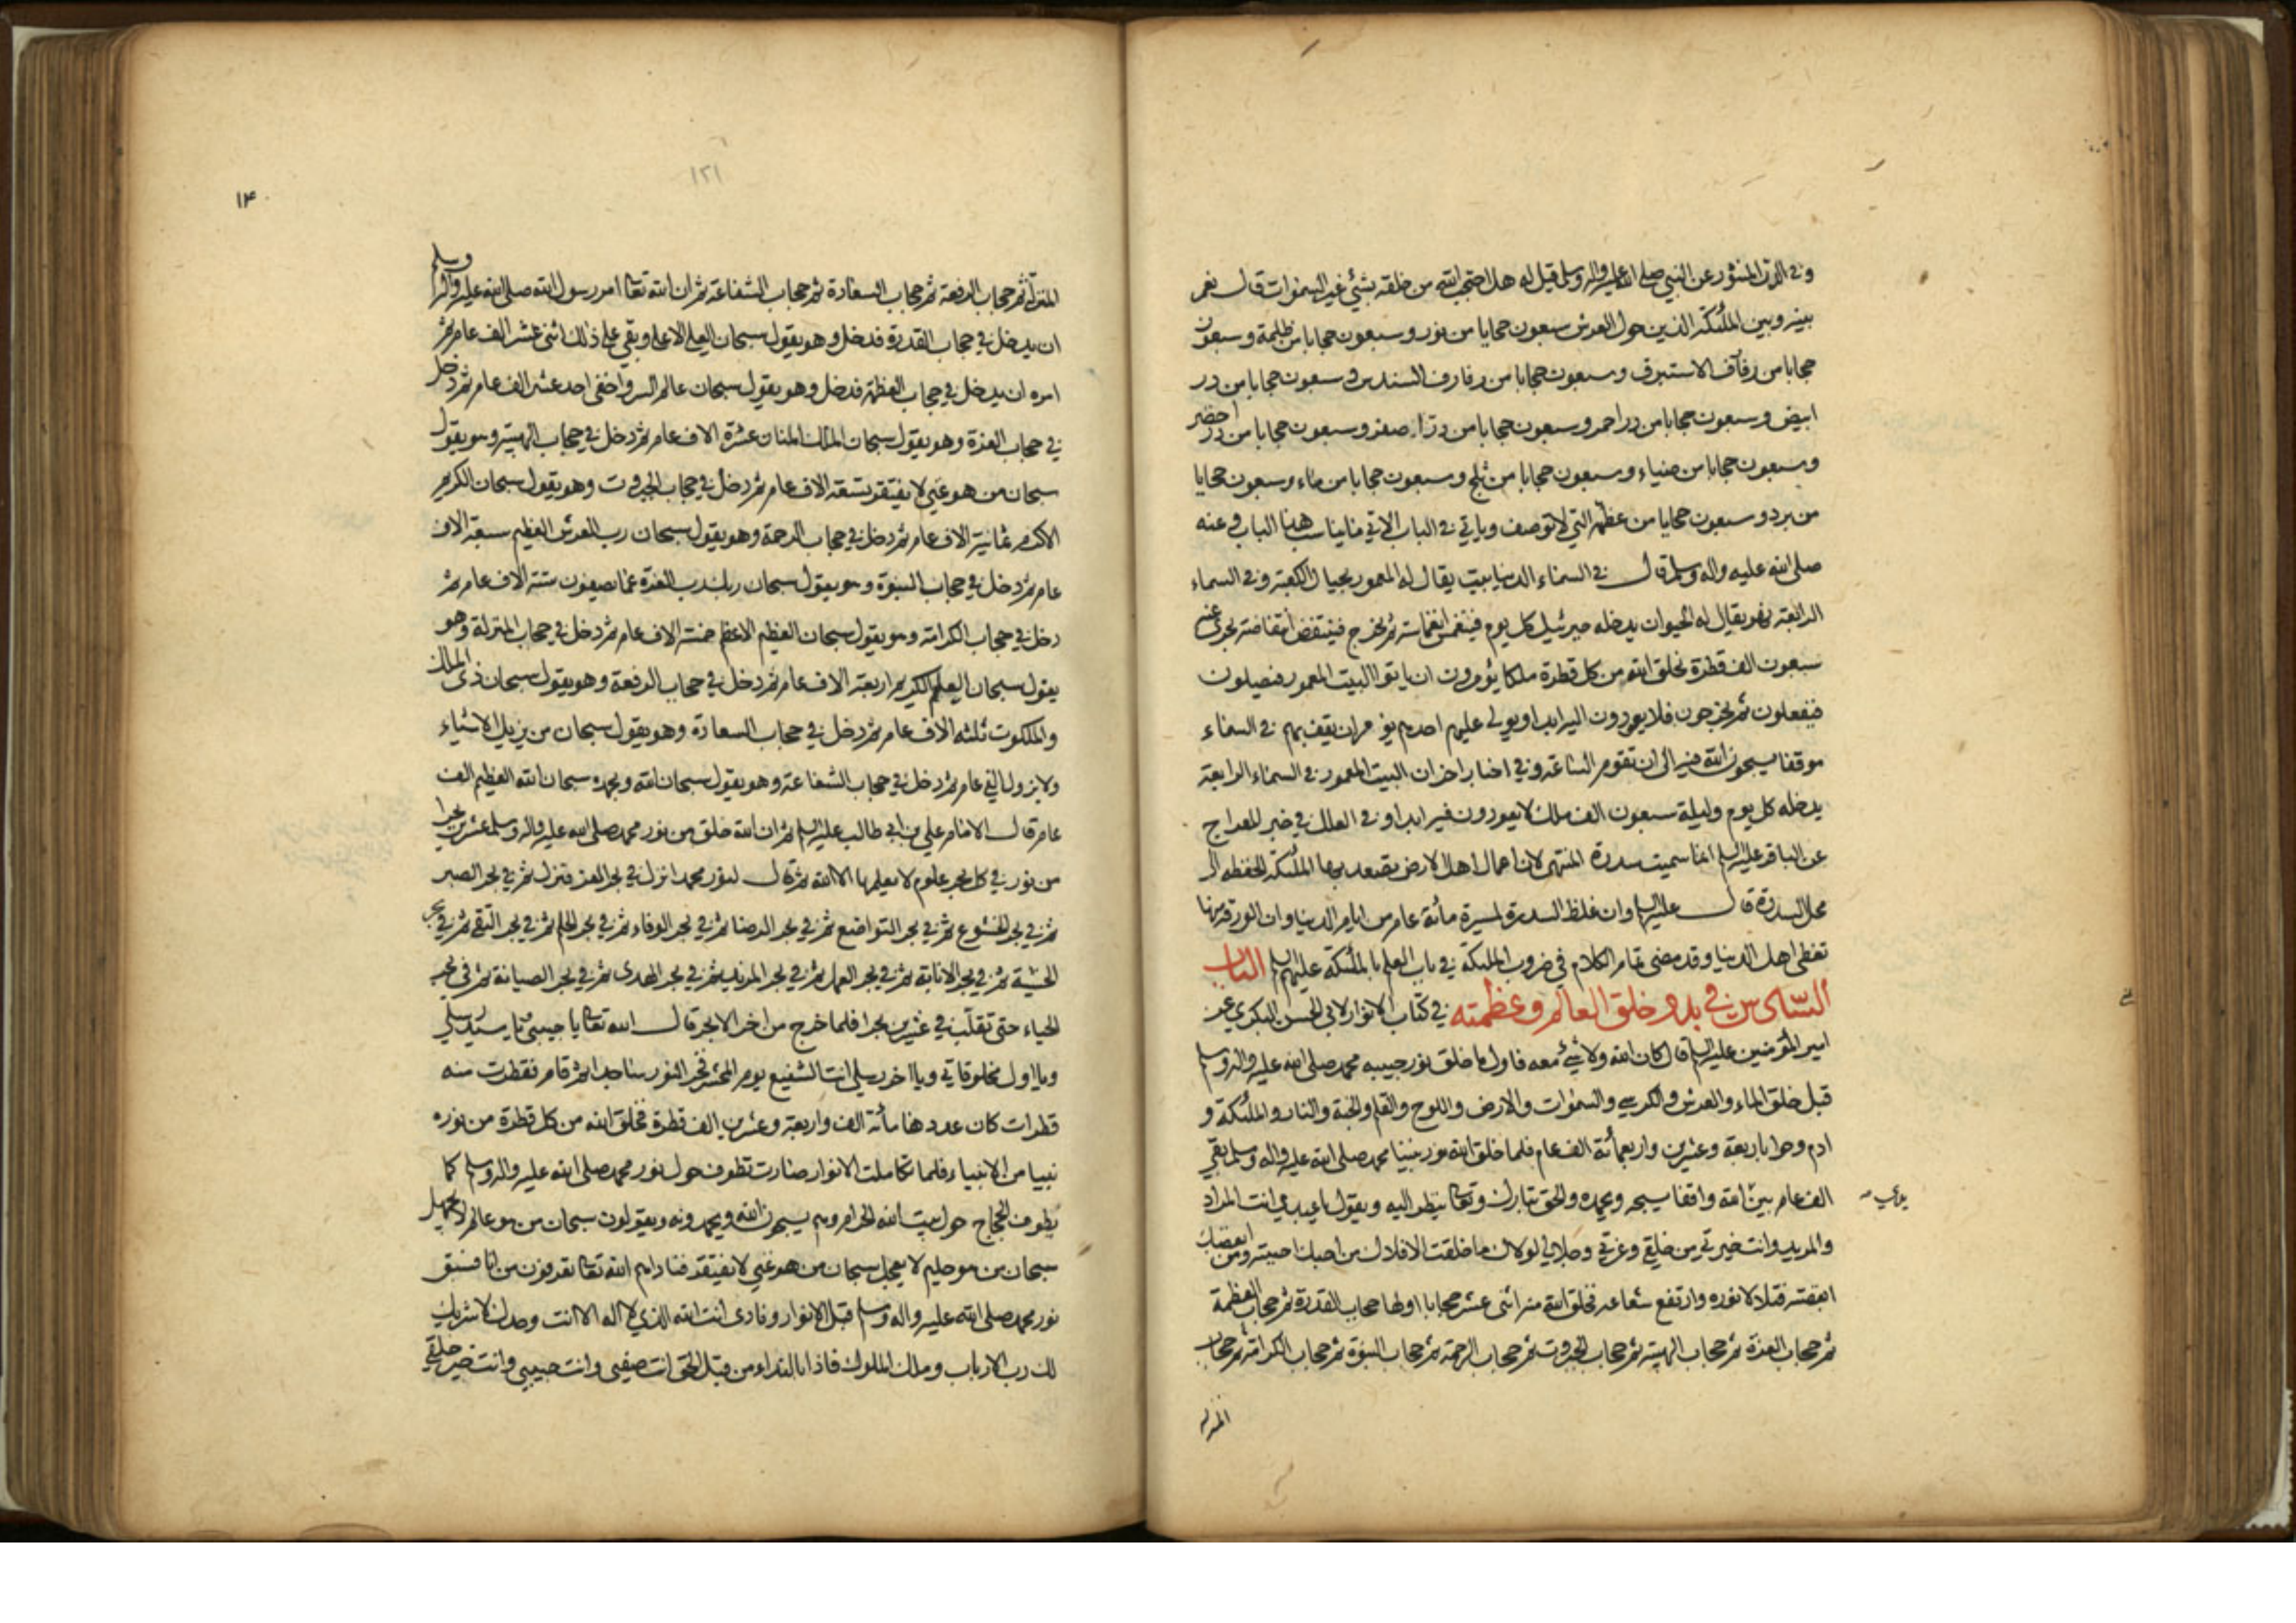 وفي الدر المنثور عن النبي صلى الله عليه واله وسلم قيل له هل احتجب الله من خلقه بشئ غير السموات قال نعم
بينه وبين الملئكة الذين حول العرش سبعون حجابا من نور وسبعون حجابا من ظلمة وسبعون
حجابا من رفارف الاستبرق وسبعون حجابا من رفارف السندس وسبعون حجابا من در
ابيض وسبعون حجابا من در احمر وسبعون حجابا من در اصفر وسبعون حجابا من در اخضر
وسبعون حجابا من ضياء وسبعون حجابا من ثلج وسبعون حجابا من ماء وسبعون حجابا
من برد وسبعون حجابا من عظمته التي لا توصف وياتي في الباب الاتي ما يناسب هذا الباب وعنه
صلى الله عليه واله وسلم قال في السماء الدنيا بيت يقال له المعمور بحيال الكعبة وفي السماء
الرابعة نهر يقال له الحيوان يدخله جبرئيل كل يوم فينغمس انغماسة ثم يخرج فينتفض انتفاضة يخر عنه
سبعون الف قطرة يخلق الله من كل قطرة ملكا يؤمرون ان ياتوا البيت المعمور فيصلون
فيفعلون ثم يخرجون فلا يعودون اليه ابدا ويولي عليهم احدهم يؤمر ان يقف بهم في السماء
موقفا يسبحون الله فيه الى ان تقوم الساعة وفي اخبار اخر ان البيت المعمور في السماء الرابعة
يدخله كل يوم وليلة سبعون الف ملك لا يعودون فيه ابدا وفي العلل في خبر المعراج
عن الباقر عليه السلم انما سميت سدرة المنتهى لان اعمال اهل الارض تصعد بها الملئكة الحفظه الى
محل السدرة قال عليه السلم وان غلظ السدرة لمسيرة مائة عام من ايام الدنيا وان الورقة منها
تغطي اهل الدنيا وقد مضى تمام الكلام في ضروب الملئكة في باب العلم بالملئكة عليهم السلم الباب
السادس في بدو خلق العالم وعظمته في كتاب الانوار لابي الحسن البكري عن
امير المؤمنين عليه السلم قال كان الله ولا شئ معه فاول ما خلق نور حبيبه محمد صلى الله عليه واله وسلم
قبل خلق الماء والعرش والكرسي والسموات والارض واللوح والقلم والجنة والنار والملئكة و
ادم وحوا باربعة وعشرين واربعمائة الف عام فلما خلق الله نور نبينا محمد صلى الله عليه واله وسلم بقي
الف عام بين الله واقفا يسبحه ويحمده والحق تبارك وتعالى ينظر اليه ويقول يا عبدي انت المراد
يدي
والمريد وانت خيرتي من خلقي وعزتي وجلالي لولاك ما خلقت الافلاك من احبك احببته ومن ابغضك
ابغضته فتلالا نوره وارتفع شعاعه فخلق الله منه اثنى عشر حجابا اولها حجاب القدرة ثم حجاب العظمة
ثم حجاب العزة ثم حجاب الهيبة ثم حجاب الجبروت ثم حجاب الرحمة ثم حجاب النبوة ثم حجاب الكرامة ثم حجاب
المنزله
١٢١
١٤٠
المنزلة ثم حجاب الرفعة ثم حجاب السعادة ثم حجاب الشفاعة ثم ان الله تعالى امر رسول الله صلى الله عليه واله وسلم
ان يدخل في حجاب القدرة فدخل وهو يقول سبحان العلي الاعلى وبقي على ذلك اثنى عشر الف عام ثم
امره ان يدخل في حجاب العظمة فدخل وهو يقول سبحان عالم السر واخفى احد عشر الف عام ثم دخل
في حجاب العزة وهو يقول سبحان الملك المنان عشرة الاف عام ثم دخل في حجاب الهيبة وهو يقول
سبحان من هو غني لا يفتقر تسعة الاف عام ثم دخل في حجاب الجبروت وهو يقول سبحان الكريم
الاكرم ثمانية الاف عام ثم دخل في حجاب الرحمة وهو يقول سبحان رب العرش العظيم سبعة الاف
عام ثم دخل في حجاب النبوة وهو يقول سبحان ربك رب العزة عما يصفون ستة الاف عام ثم
دخل في حجاب الكرامة وهو يقول سبحان العظيم الاعظم خمسة الاف عام ثم دخل في حجاب المنزلة وهو
يقول سبحان العليم الكريم اربعة الاف عام ثم دخل في حجاب الرفعة وهو يقول سبحان ذي الملك
والملكوت ثلثه الاف عام ثم دخل في حجاب السعادة وهو يقول سبحان من يزيل الاشياء
ولا يزول الفي عام ثم دخل في حجاب الشفاعة وهو يقول سبحان الله وبحمده سبحان الله العظيم الف
عام قال الامام علي بن ابي طالب عليه السلم ثم ان الله خلق من نور محمد صلى الله عليه واله وسلم عشرين بحرا
من نور في كل بحر علوم لا يعلمها الا الله ثم قال لنور محمد انزل في بحر العز فنزل ثم في بحر الصبر
ثم في بحر الخشوع ثم في بحر التواضع ثم في بحر الرضا ثم في بحر الوفاء ثم في بحر الحلم ثم في بحر التقى ثم في بحر
الخشية ثم في بحر الانابة ثم في بحر العمل ثم في بحر المزيد ثم في بحر الهدى ثم في بحر الصيانة ثم في بحر
الحياء حتى تقلب في عشرين بحرا فلما خرج من اخر الابحر قال الله تعالى يا حبيبي ويا سيد رسلي
ويا اول مخلوقاتي ويا اخر رسلي انت الشفيع يوم المحشر فخر النور ساجدا ثم قام فقطرت منه
قطرات كان عددها مائة الف واربعة وعشرين الف قطرة فخلق الله من كل قطرة من نوره
نبيا من الانبياء فلما تكاملت الانوار صارت تطوف حول نور محمد صلى الله عليه واله وسلم كما
يطوف الحجاج حول بيت الله الحرام وهم يسبحون الله ويحمدونه ويقولون سبحان من هو عالم لا يجهل
سبحان من هو حليم لا يعجل سبحان من هو غني لا يفتقر فناداهم الله تعالى تعرفون من انا فسبق
نور محمد صلى الله عليه واله وسلم قبل الانوار ونادى انت الله الذي لا اله الا انت وحدك لا شريك
لك رب الارباب وملك الملوك فاذا بالنداء من قبل الحق انت صفيي وانت حبيبي وانت خير خلقي